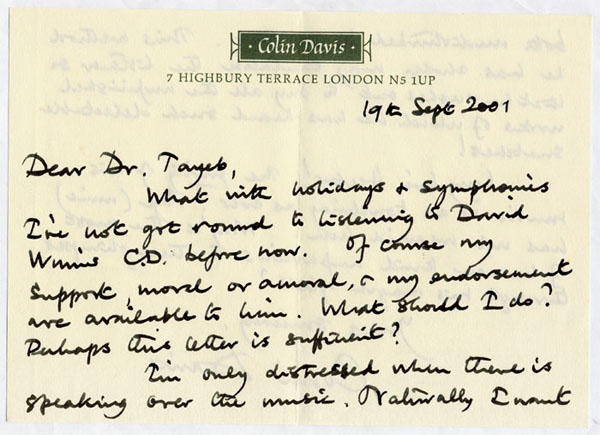 · Colin Davis ·
7 HIGHBURY TERRACE LONDON N5 1UP
19th Sept 2001
Dear Dr. Tayeb,
What with holidays & symphonies
I've not got round to listening to David
C.D. before now. Of course my
support, moral or amoral, & my endorsement
are available to him. What should I do?
Perhaps this letter is sufficient?
I'm only distressed when there is
speaking over the music. Naturally I want